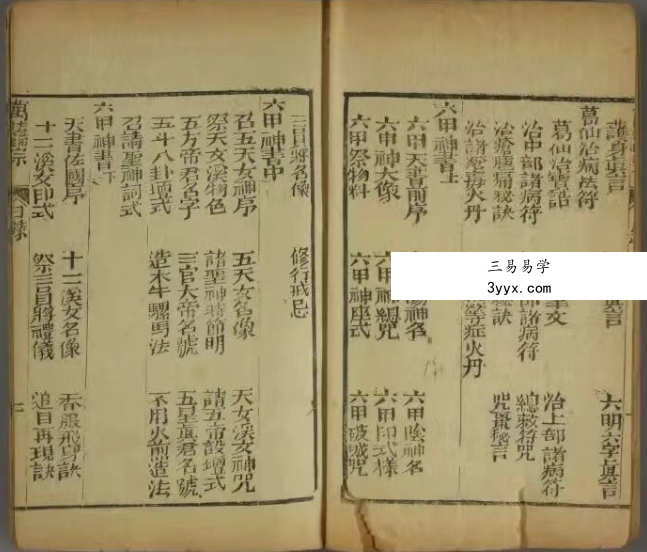 護身真言　真言　六明六字真言
葛仙治病法符
葛仙治寶誥　文　治上部諸病符
治中部諸病符　部諸病符　總敕符咒
治瘡腫痛秘訣　秘訣　咒棗秘言
治諸瘡毒火丹　等症火丹
六甲神書上
六甲天書前序　陽神名　六甲陰神名
六甲神大像　六甲總咒　六甲印式樣
六甲祭物料　六甲神座式　六甲破城咒
三員將名像　修行戒忌
六甲神書中
召五天女神序　五天女名像　天女溪女神咒
祭天女溪物色　諸聖神將節明　請五帝設壇式
五方帝君名字　三官大帝名號　五星眞君名號
五斗八卦壇式　造木牛騾馬法　不用火前造法
召請聖神詞式
六甲神書下
天書佐國序　十二溪女名像　香服飛身訣
十二溪女印式　祭三員將禮儀　追目再現訣
萬法歸宗　目錄
三易易学
3yyx.com